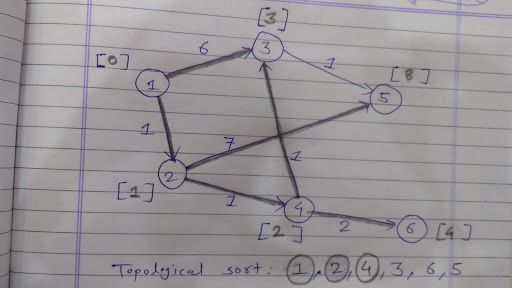 [3]
6
3
1
[0]
[8]
1
5
1
7
2
1
[1]
1
4
2
6
[2]
[4]
Topological sort: 1, 2, 4, 3, 6, 5